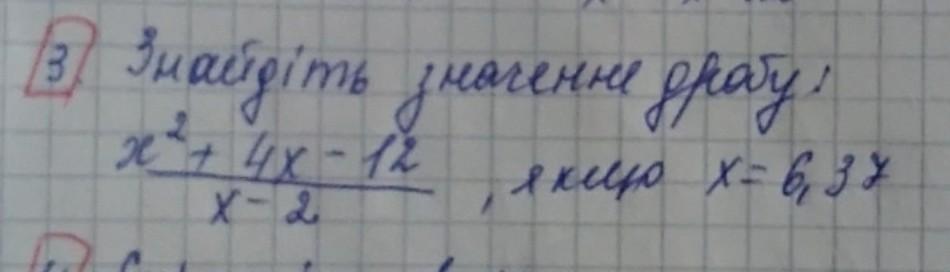 3. Знайдіть значення дробу:
x² + 4x - 12
x - 2
, якщо x = 6,37